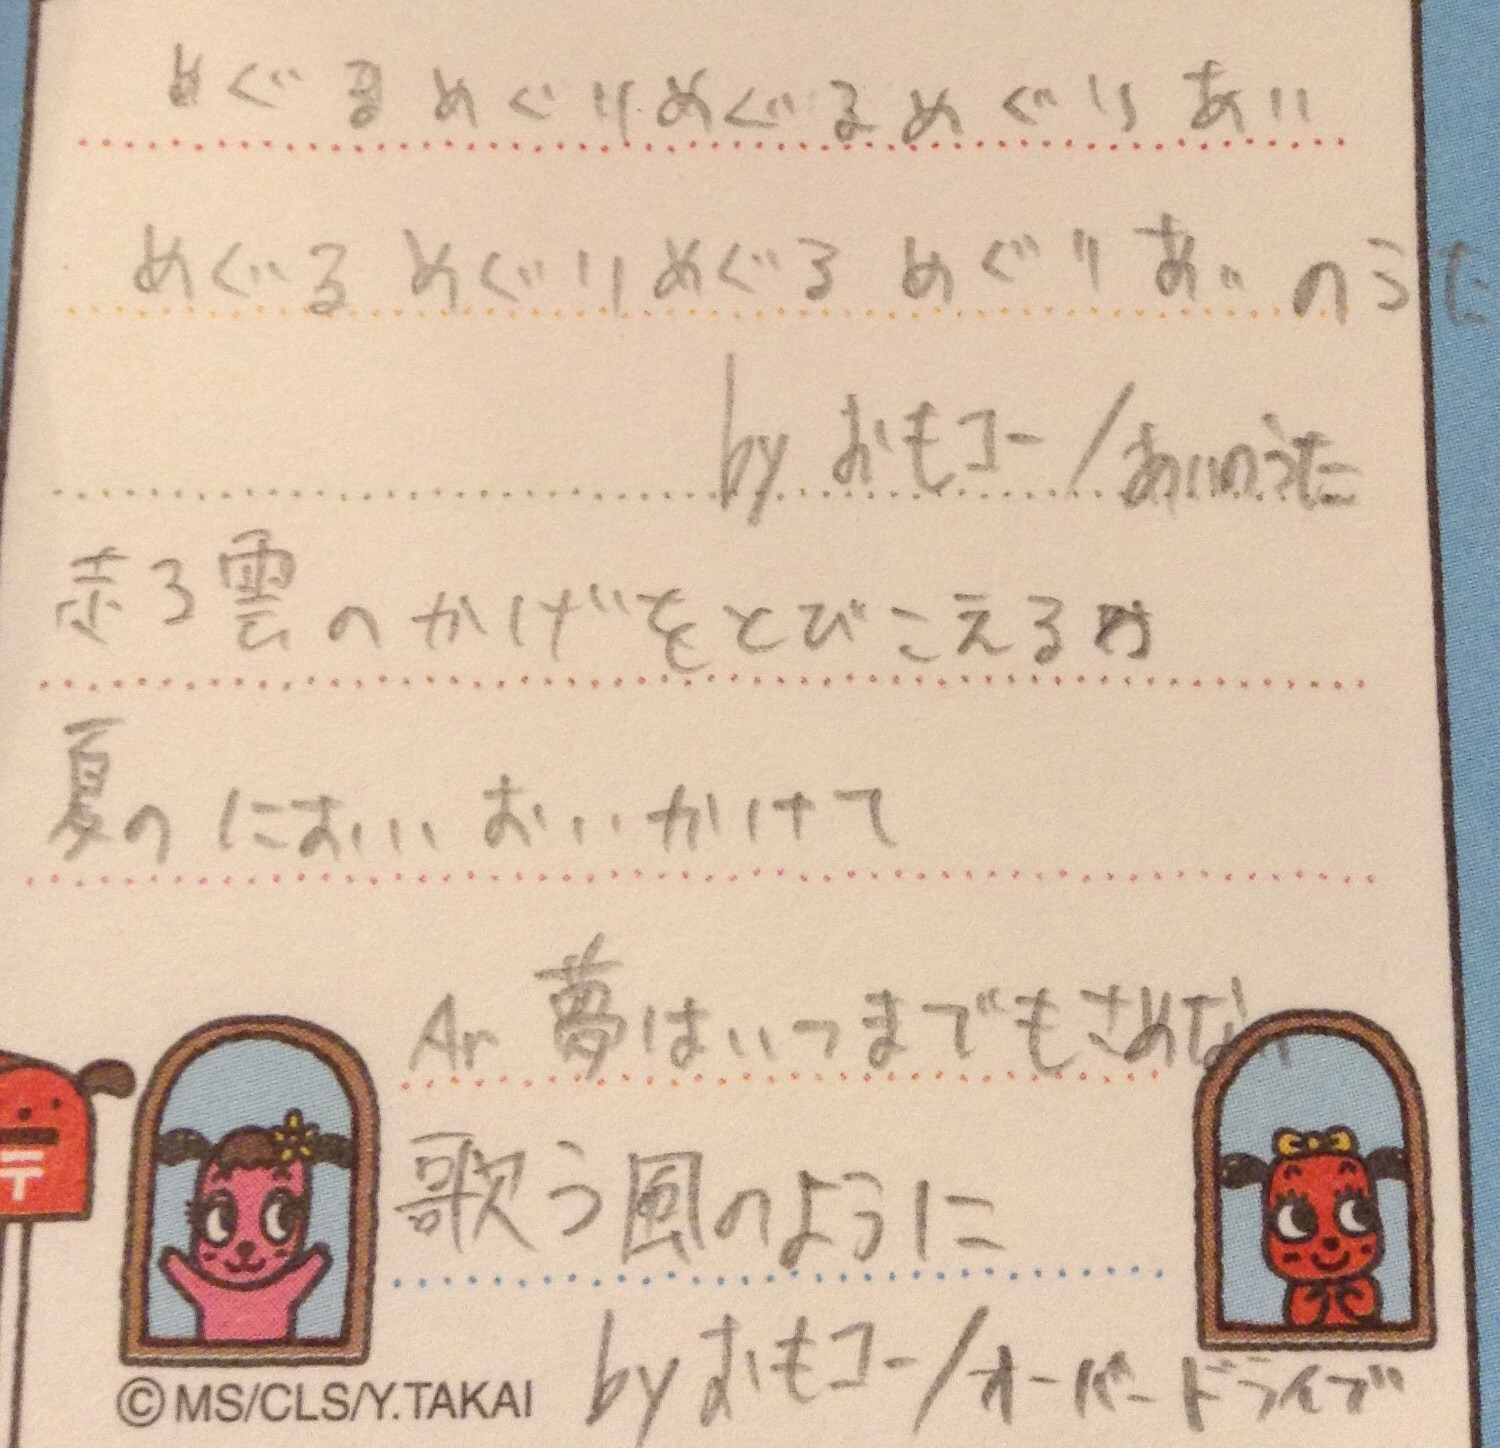 めぐるめぐりめぐるめぐりあい
めぐるめぐりめぐるめぐりあいのうた
by おもコー/あいのうた
走る雲のかげをとびこえるわ
夏のにおいおいかけて
Ah 夢はいつまでもさめない
歌う風のように
by おもコー/オーバードライブ
〒
©MS/CLS/Y.TAKAI